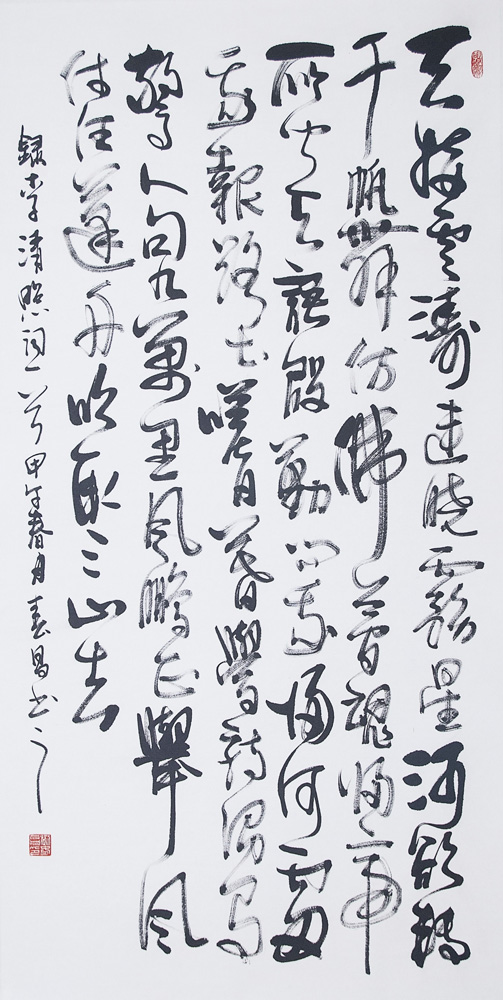 天接雲濤連曉霧星河欲轉
千帆舞仿佛夢魂歸帝
所聞天語殷勤問我歸何處
我報路長嗟日暮學詩漫有
驚人句九萬里風鵬正舉風
休住蓬舟吹取三山去
錄李清照詞一首甲午春月昌書之